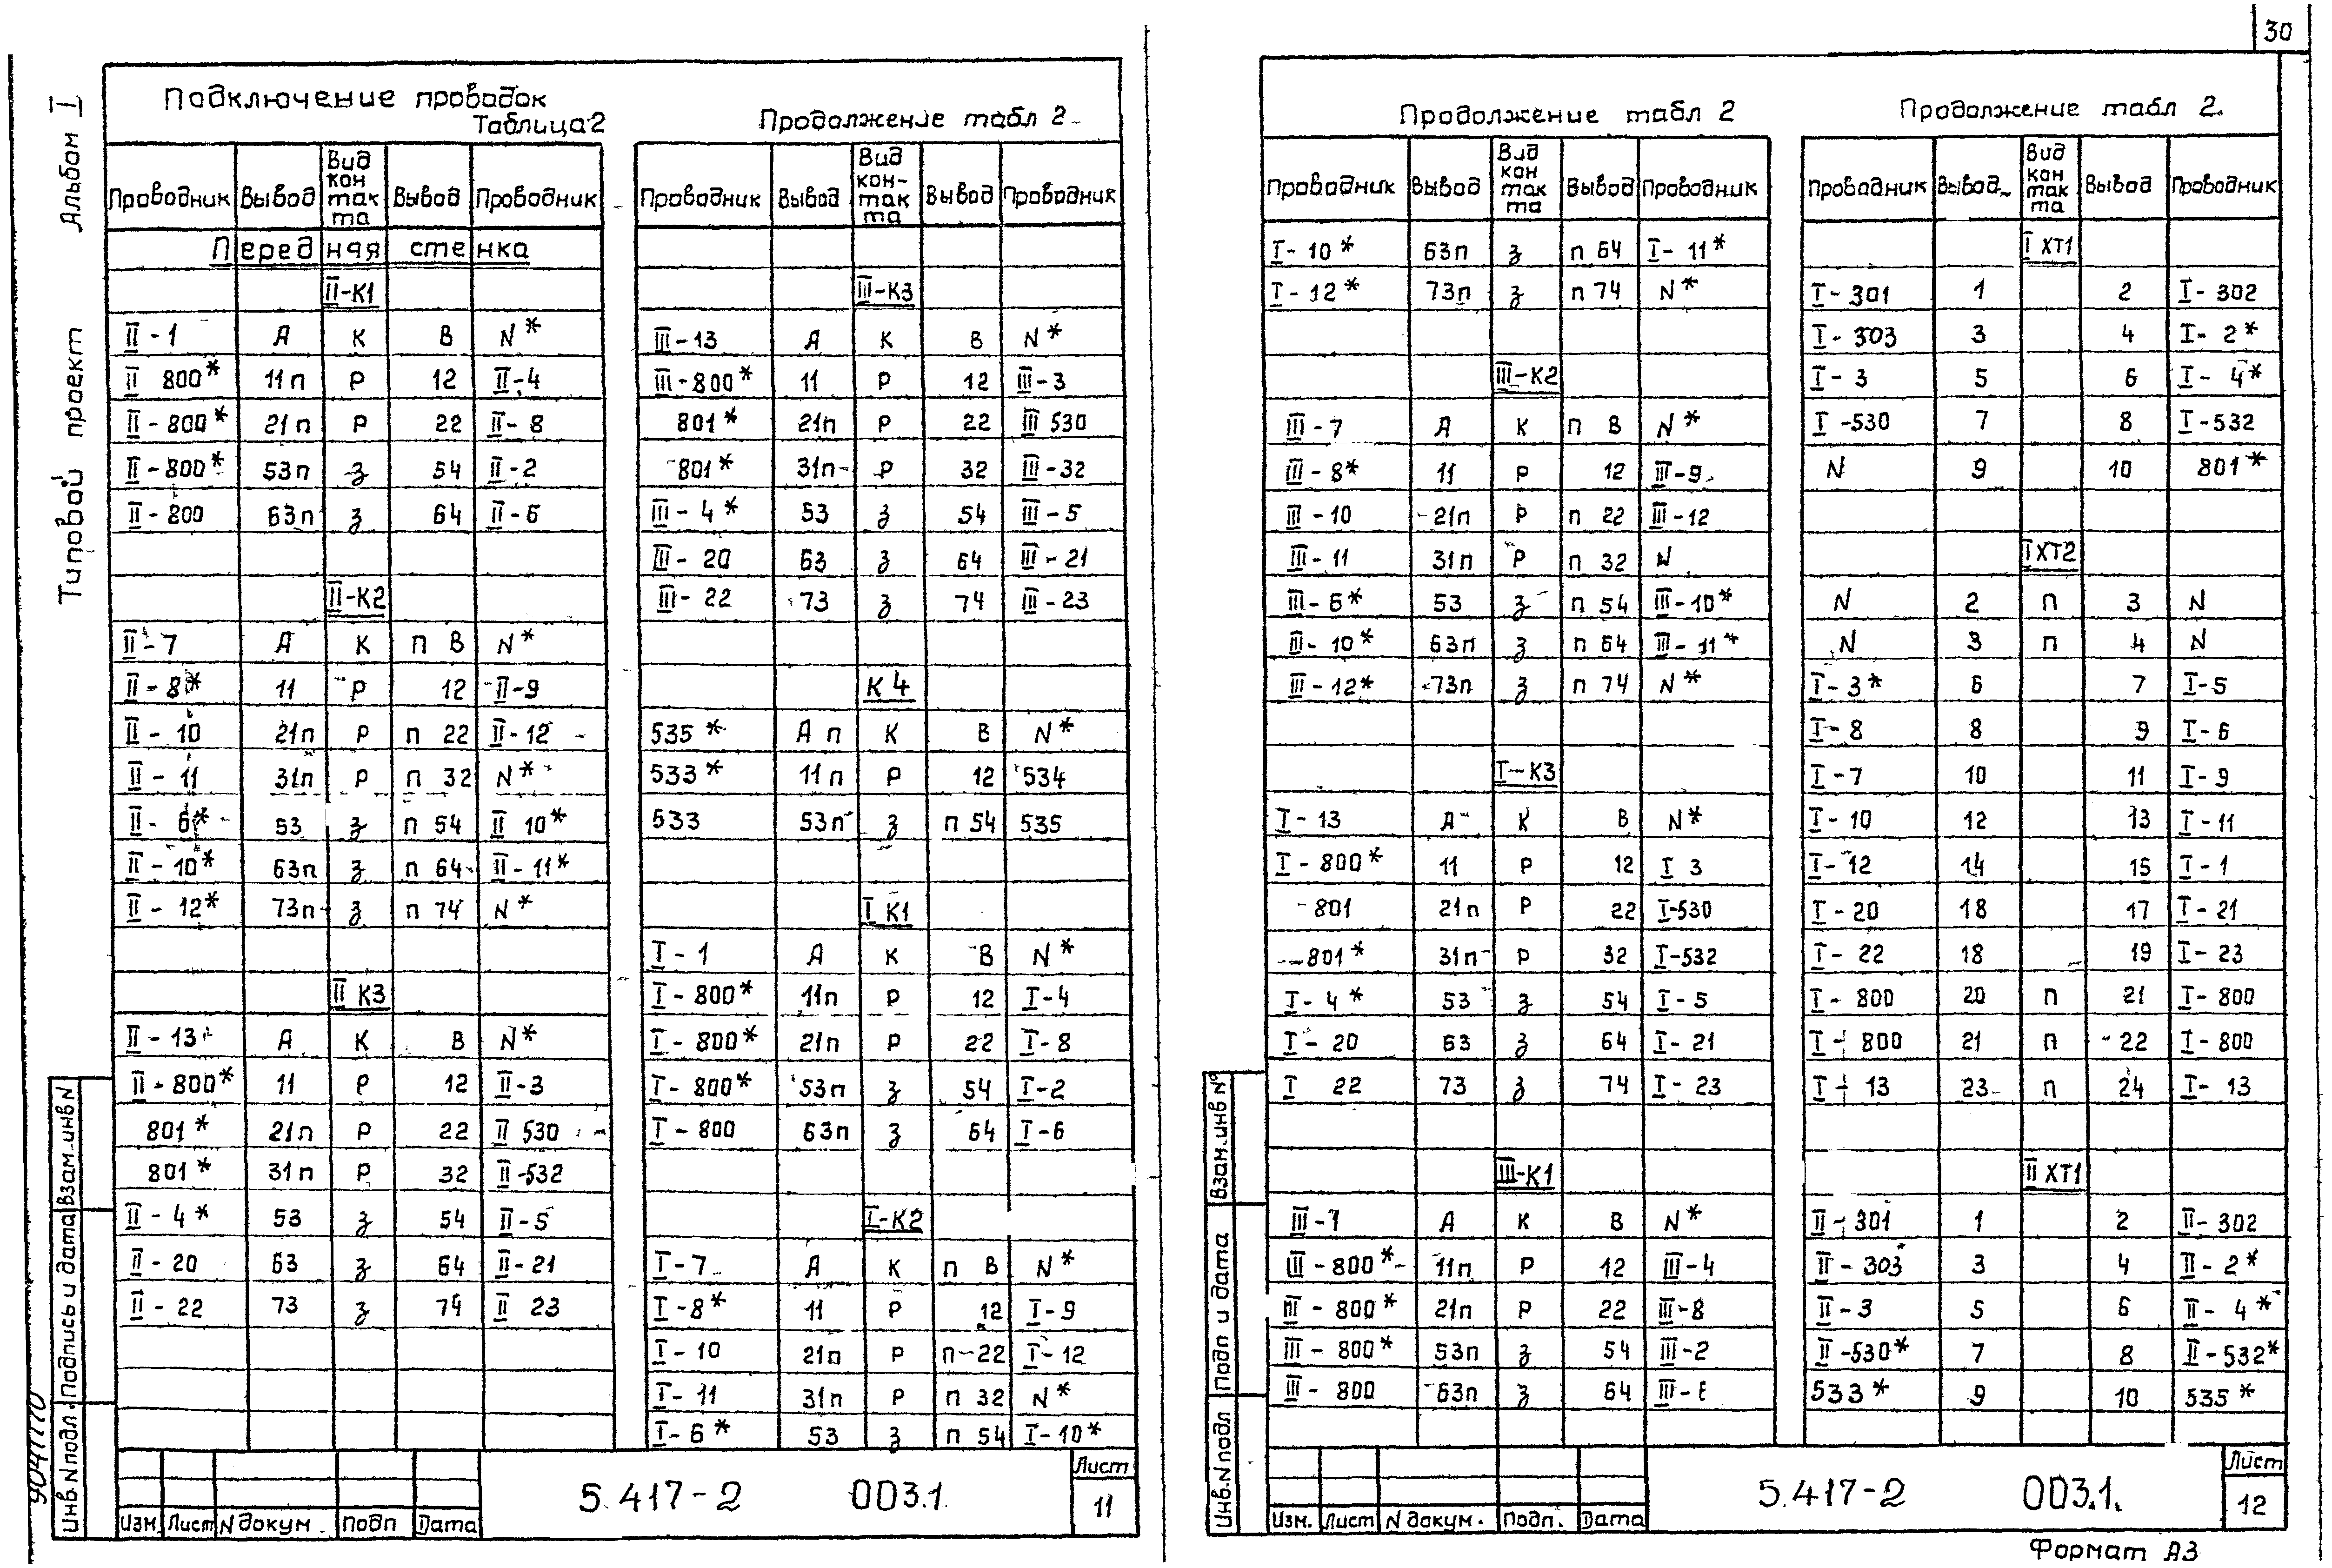 30
Альбом I
Типовой проект
Подключение проводок
Таблица 2
Проводник Вывод Вид контакта Вывод Проводник
Передняя стенка
II-К1
II-1 А К В N*
II 800* 11п Р 12 II-4
II-800* 21п Р 22 II-8
II-800* 53п З 54 II-2
II-800 63п З 64 II-6
II-К2
II-7 А К п В N*
II-8* 11 Р 12 II-9
II-10 21п Р п 22 II-12
II-11 31п Р п 32 N*
II-6* 53 З п 54 II 10*
II-10* 63п З п 64 II-11*
II-12* 73п З п 74 N*
II К3
II-13 А К В N*
II-800* 11 Р 12 II-3
801* 21п Р 22 II 530
801* 31п Р 32 II-532
II-4* 53 З 54 II-5
II-20 63 З 64 II-21
II-22 73 З 74 II 23
Продолжение табл 2
Проводник Вывод Вид контакта Вывод Проводник
III-К3
III-13 А К В N*
III-800* 11 Р 12 III-3
801* 21п Р 22 III 530
801* 31п Р 32 III-32
III-4* 53 З 54 III-5
III-20 63 З 64 III-21
III-22 73 З 74 III-23
К4
535* А п К В N*
533* 11п Р 12 534
533 53п З п 54 535
I К1
I-1 А К В N*
I-800* 11п Р 12 I-4
I-800* 21п Р 22 I-8
I-800* 53п З 54 I-2
I-800 63п З 64 I-6
I-К2
I-7 А К п В N*
I-8* 11 Р 12 I-9
I-10 21п Р п 22 I-12
I-11 31п Р п 32 N*
I-6* 53 З п 54 I-10*
Инв.N подл. Подпись и дата Взам.инв N
Изм. Лист N докум. Подп Дата
5.417-2 003.1.
Лист
11
Продолжение табл 2
Проводник Вывод Вид контакта Вывод Проводник
I-10* 63п З п 64 I-11*
I-12* 73п З п 74 N*
III-К2
III-7 А К п В N*
III-8* 11 Р 12 III-9
III-10 21п Р п 22 III-12
III-11 31п Р п 32 N
III-6* 53 З п 54 III-10*
III-10* 63п З п 64 III-11*
III-12* 73п З п 74 N*
I-К3
I-13 А К В N*
I-800* 11 Р 12 I 3
801 21п Р 22 I-530
801* 31п Р 32 I-532
I-4* 53 З 54 I-5
I-20 63 З 64 I-21
I 22 73 З 74 I-23
III-К1
III-1 А К В N*
III-800* 11п Р 12 III-4
III-800* 21п Р 22 III-8
III-800* 53п З 54 III-2
III-800 63п З 64
Продолжение табл 2.
Проводник Вывод Вид контакта Вывод Проводник
I ХТ1
I-301 1 2 I-302
I-303 3 4 I-2*
I-3 5 6 I-4*
I-530 7 8 I-532
N 9 10 801*
I ХТ2
N 2 п 3 N
N 3 п 4 N
I-3* 6 7 I-5
I-8 8 9 I-6
I-7 10 11 I-9
I-10 12 13 I-11
I-12 14 15 I-1
I-20 18 17 I-21
I-22 18 19 I-23
I-800 20 п 21 I-800
I-800 21 п 22 I-800
I-13 23 п 24 I-13
II ХТ1
II-301 1 2 II-302
II-303 3 4 II-2*
II-3 5 6 II-4*
II-530* 7 8 II-532*
533* 9 10 535*
Инв.N подл Подп и дата Взам.инв N°
Изм. Лист N докум. Подп. Дата
5.417-2 003.1.
Лист
12
Формат А3